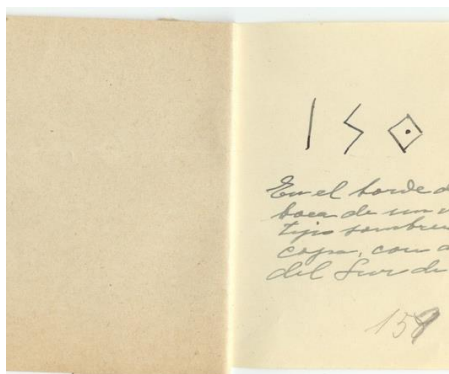 En el borde d
boca de un v
tipo sombrer
copa, con d
del Sur de
158